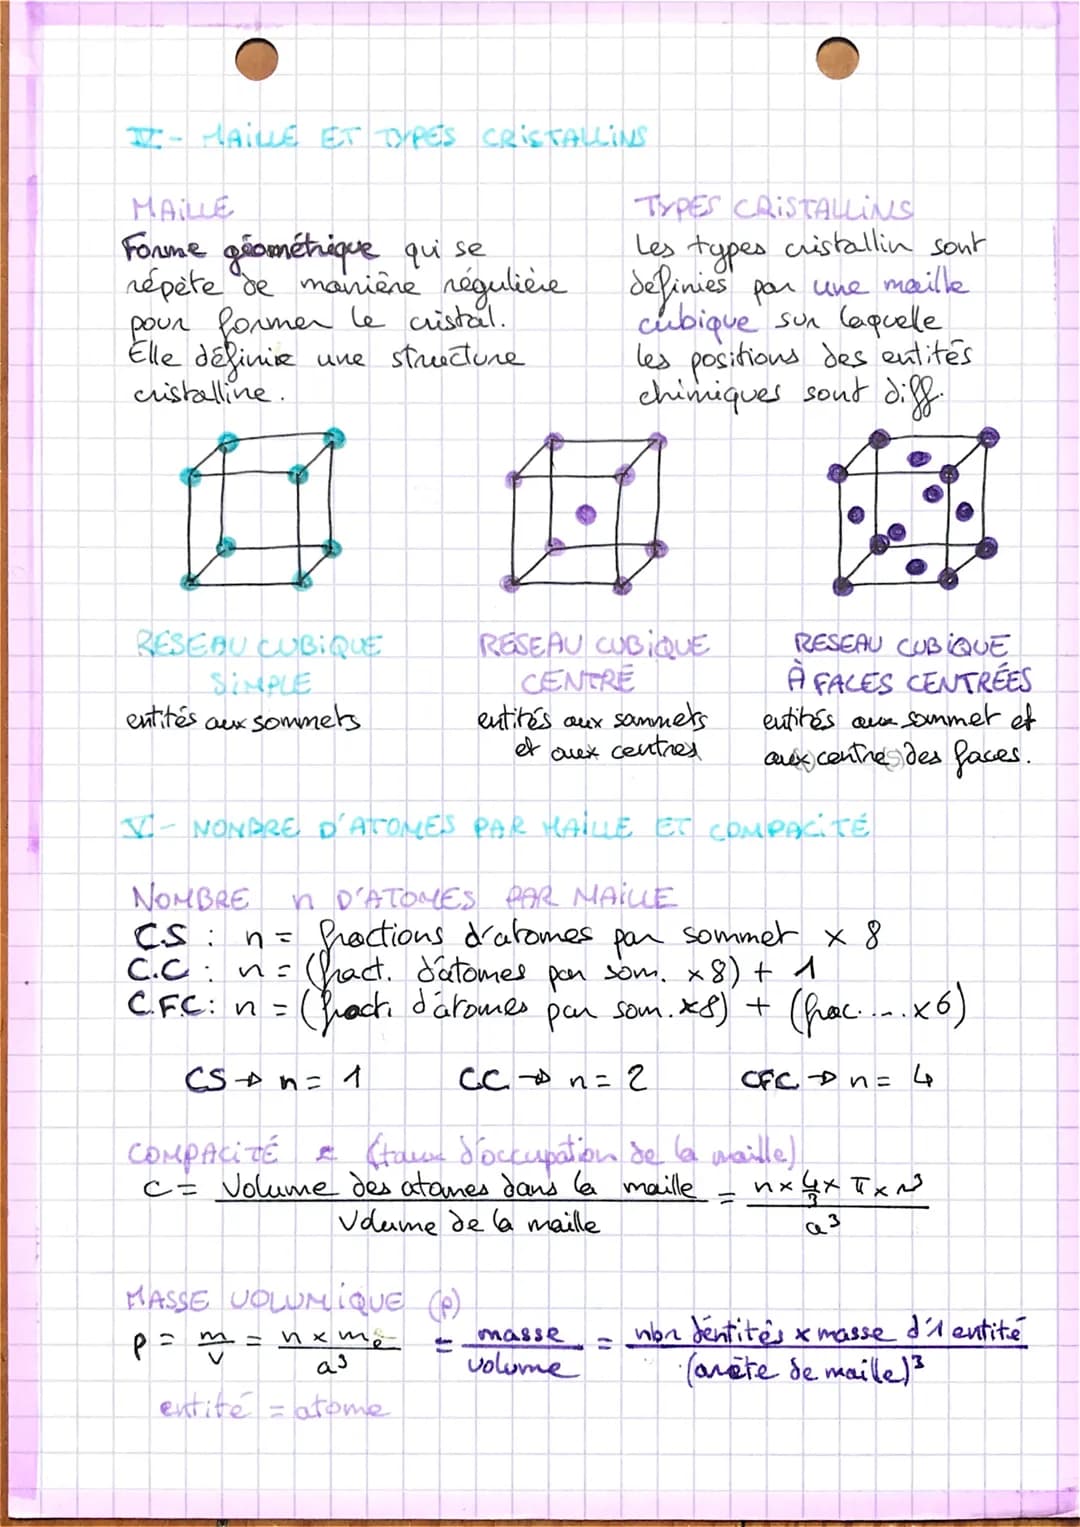 IV - MAILLE ET TYPES CRISTALLINS
MAILLE
Forme géométrique qui se
répète de manière régulière
pour former le cristal.
Elle définie une structure
cristalline.
TYPES CRISTALLINS
Les types cristallin sont
définies par une maille
cubique sur laquelle
les positions des entités
chimiques sont diff.
RESEAU CUBIQUE
SIMPLE
entités aux sommets
RESEAU CUBIQUE
CENTRÉ
entités aux sommets
et aux centres
RESEAU CUBIQUE
À FACES CENTRÉES
entités aux sommet et
aux centres des faces.
V - NOMBRE D'ATOMES PAR MAILLE ET COMPACITÉ
NOMBRE n D'ATOMES PAR MAILLE
C.S : n = fractions d'atomes par sommet x 8
C.C : n = (fract. d'atomes par som. x8) + 1
C.F.C : n = (fract. d'atomes par som. x8) + (frac.... x6)
CS → n = 1
CC → n = 2
CFC → n = 4
COMPACITÉ (taux d'occupation de la maille)
C = Volume des atomes dans la maille / Volume de la maille = n x 4/3 x π x r³ / a³
MASSE VOLUMIQUE (ρ)
ρ = m/v = n x me / a³ = masse / volume = nbr d'entités x masse d'1 entité / (arête de maille)³
entité = atome